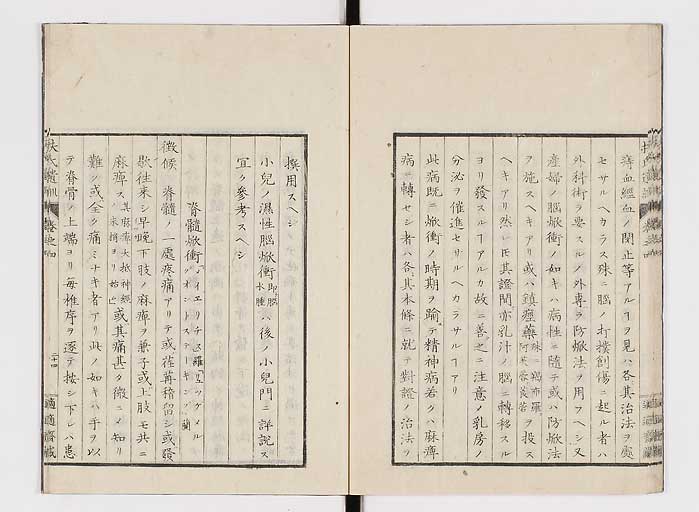 痔血經血ノ閉止等アルヿヲ見ハ各其治法ヲ處
セサルヘカラス殊ニ腦ノ打撲創傷ニ起ル者ハ
外科術ヲ要スルノ外専ラ防焮法ヲ用フヘシ又
産婦ノ腦焮衝ノ如キハ病性ニ隨テ或ハ防焮法
ヲ施スヘキアリ或ハ鎮痙藥殊ニ羯布羅阿芙蓉莨若ヲ投ス
ヘキアリ然レ𪜈其證間亦乳汁ノ腦ニ轉移スル
ヨリ發スルヿアルカ故ニ善ク之ニ注意ノ乳房ノ
分泌ヲ催進セサルヘカラサルヿアリ
此病既ニ焮衝ノ時期ヲ踰テ精神病若クハ麻痺
病ニ轉セシ者ハ各其本條ニ就テ對證ノ治法ヲ
撰用スヘシ
小兒ノ濕性腦焮衝即腦水腫ハ後ノ小兒門ニ詳説ス
宜ク參考スヘシ
脊髓焮衝
徴候 脊髓ノ一處疼痛アリテ或荏苒稽留シ或發
歇往来シ早晩下肢ノ麻痺ヲ兼子或上肢モ共ニ
麻痺ス其麻痺大抵神經ノ末梢ヨリ始ム或其痛甚タ微ニノ知リ
難シ或全ク痛ミナキ者アリ此ノ如キハ手ヲ以
テ脊骨ノ上端ヨリ毎椎序ヲ逐テ按シ下レハ患
二十四
適適齋藏